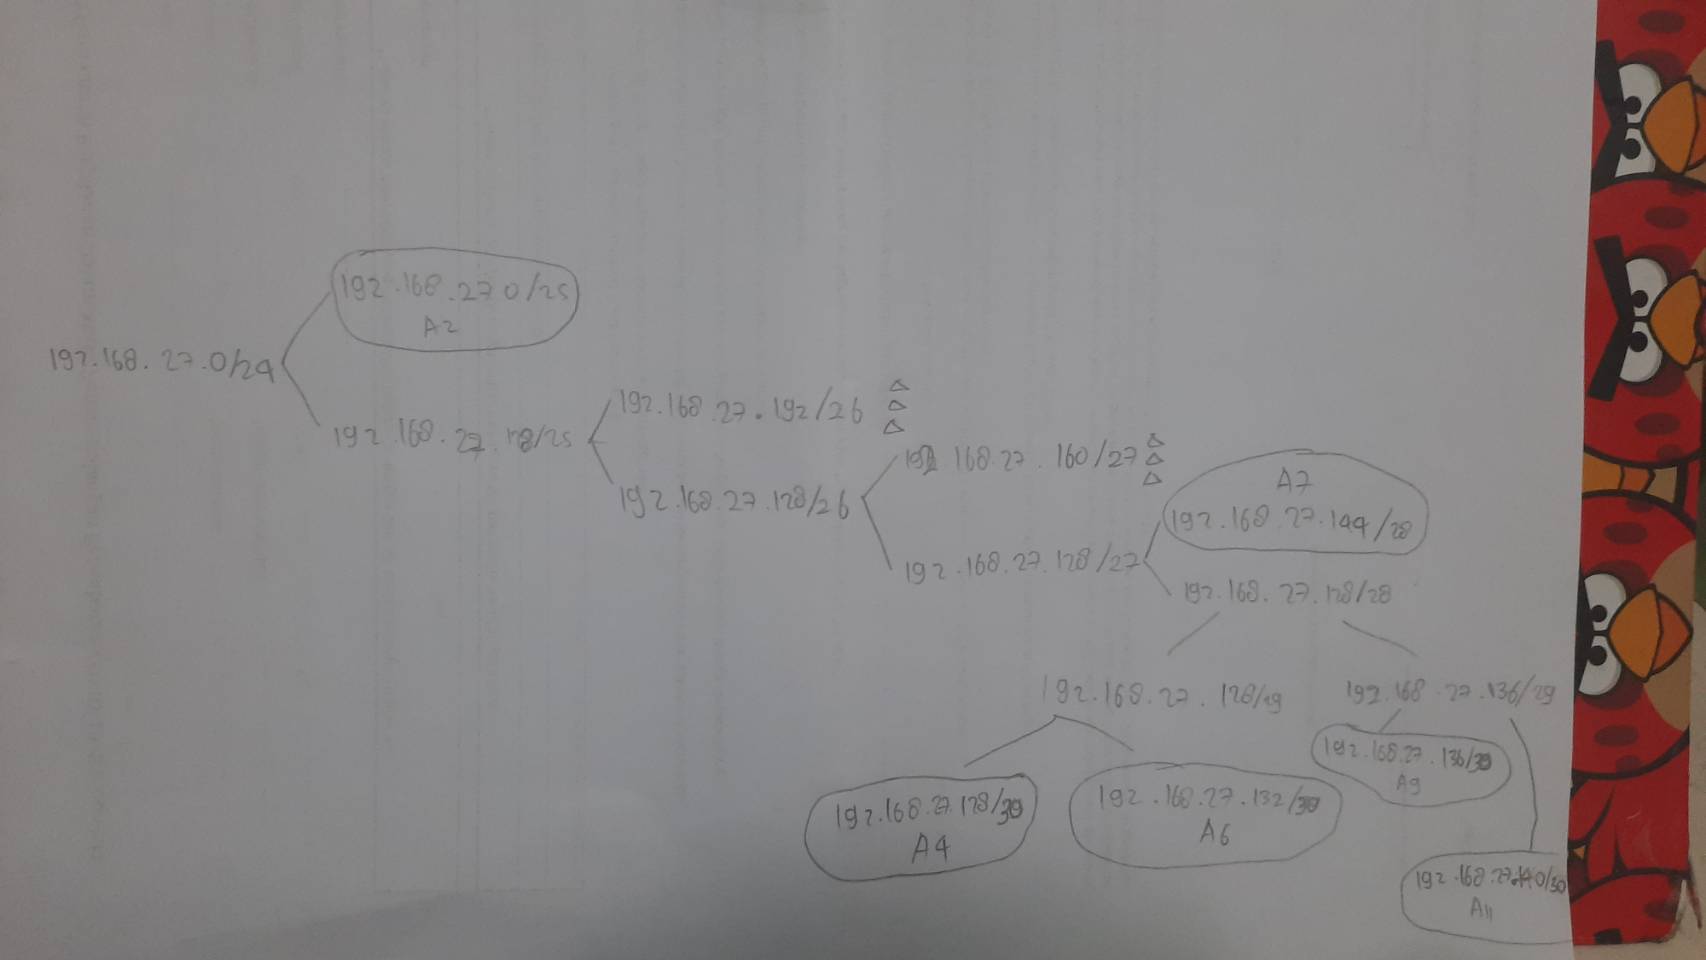 192.168.27.0/25
A2
192.168.27.0/24
192.168.27.128/25
192.168.27.192/26
192.168.27.128/26
192 168.27.160/27
192.168.27.128/27
A7
192.168.27.144/28
192.168.27.128/28
192.168.27.128/29
192.168.27.136/29
192.168.27.128/30
A4
192.168.27.132/30
A6
192.168.27.136/30
A9
192.168.27.140/30
A11